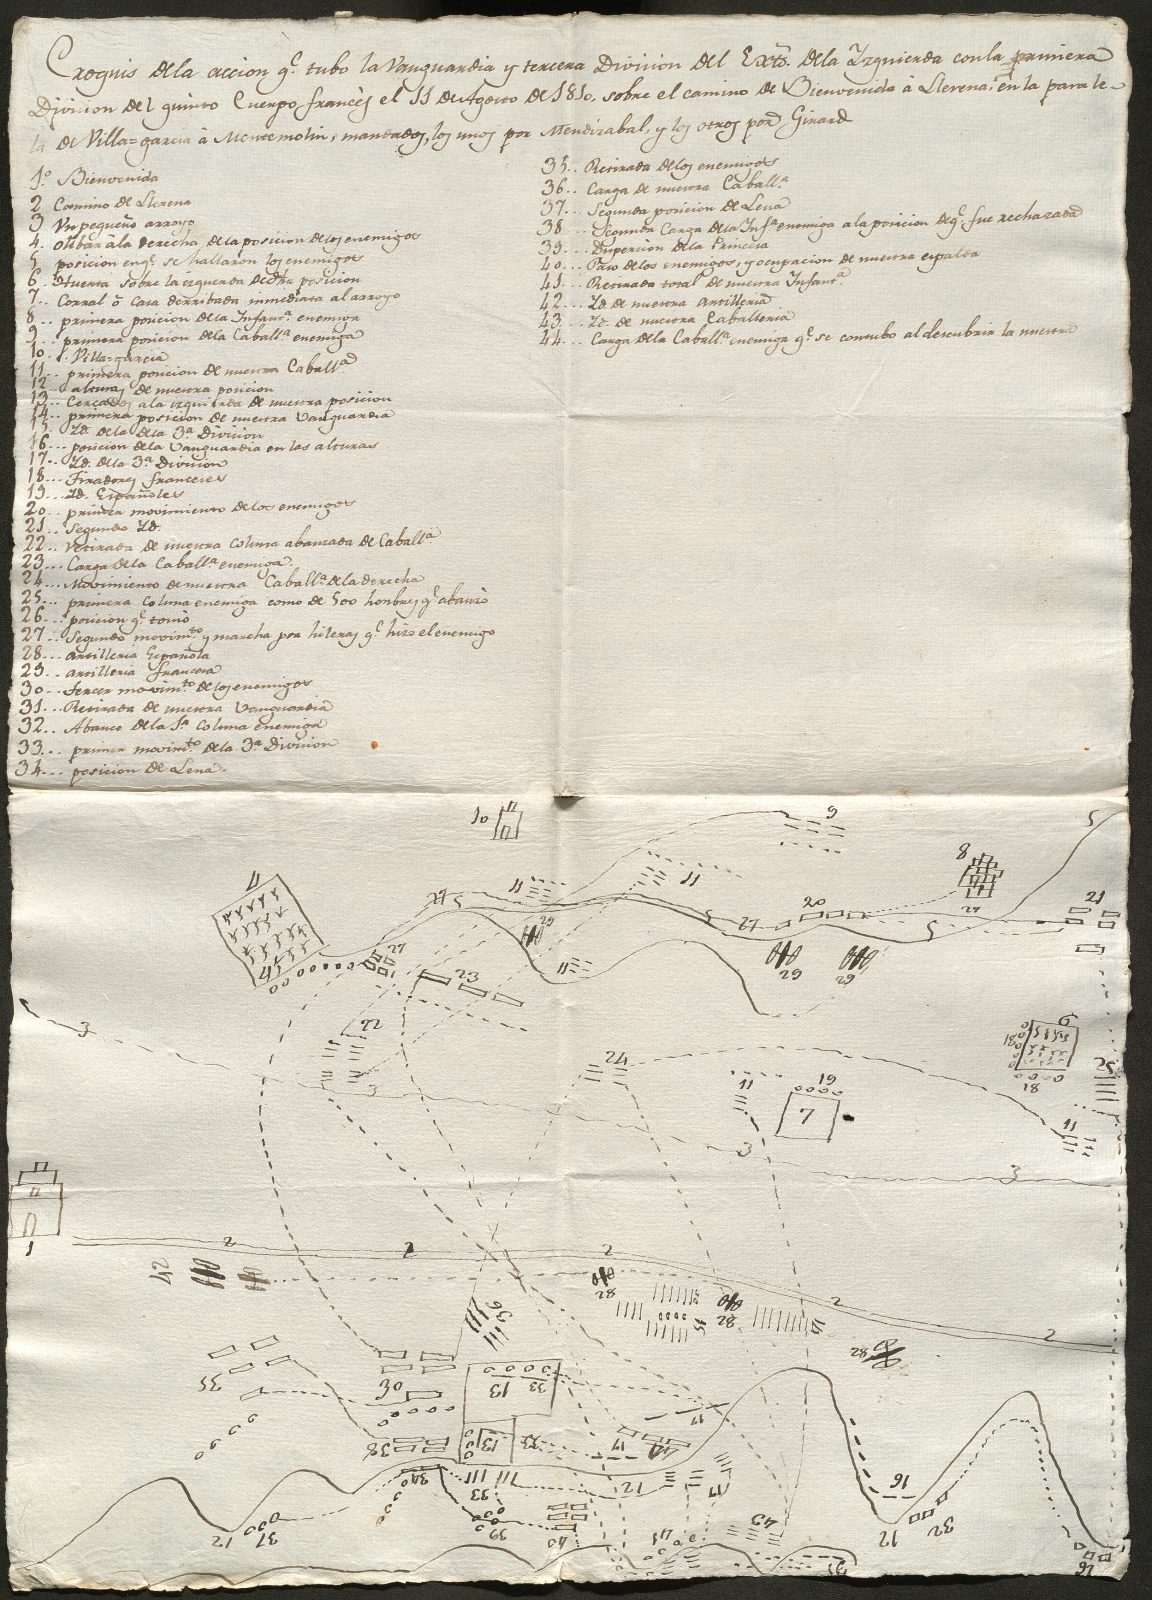 Croquis dela accion q.e tubo la Vanguardia y tercera Division del Exto. dela Yzquierda con la primera
Division del quinto Cuerpo francès el 11 de Agosto de 1810. sobre el camino de Bienvenida à Llerena, en la parale-
la de Villa=garcia à Montemolin, mandados, los unos por Mendizabal, y los otros por Girard
1.º Bienvenida
2 Camino de Llerena
3 Vn pequeño arroyo
4. Olibar àla derecha dela posicion delos enemigos
5 posicion enq.e se hallaron los enemigos
6.. Huerta sobre la izquierda de dha posicion
7... Corral ò Casa derribada inmediata al arroyo
8... primera posicion dela Infant.a enemiga
9... primera posicion dela Caball.a enemiga
10.. Villa=garcia
11... primera posicion de nuestra Caball.a
12... alturas de nuestra posicion
13... Cercados ala izquierda de nuestra posicion
14... primera posicion de nuestra Vanguardia
15. Yd. dela dela 3.a Division
16... posicion dela Vanguardia en las alturas
17.. Yd. dela 3.a Division
18... Tiradores franceses
19... Yd. Españoles
20... primer movimiento delos enemigos
21... Segundo Yd.
22... retirada de nuestra coluna abanzada de Caball.a
23... Carga dela Caball.a enemiga.
24... Movimiento de nuestra Caball.a dela derecha
25... primera coluna enemiga como de 500 honbres q.e abanzò
26... posicion q.e tomò
27... Segundo movim.to y marcha por hileras q.e hizo el enemigo
28... artilleria Española
29... artilleria francesa
30... tercer movim.to delos enemigos
31... Retirada de nuestra Vanguardia
32... Abance dela 1.a coluna enemiga
33... primer movim.to dela 3.a Division
34... posicion de Lena.
35... Retirada delos enemigos
36... Carga de nuestra Caball.a
37... Segunda posicion de Lena
38... Segunda Carga dela Inf.a enemiga ala posicion deq.e fue rechazada
39... Dispersion dela Princesa
40... Paso delos enemigos, y ocupacion de nuestra espalda
41... Retirada total de nuestra Infant.a
42... Yd. de nuestra artilleria
43... Yd. de nuestra Caballeria
44... Carga dela Caball.a enemiga q.e se contubo al descubrir la nuestra
10
9
5
8
4
11
11
27
5
29
5
27
20
29
29
5
27
21
4
27
23
11
22
3
3
24
11
19
7
3
3
6
18
18
25
11
1
2
2
2
2
2
42
28
28
15
15
28
36
35
30
13
33
13
33
38
34
33
17
17
44
12
17
16
12
32
12
37
39
40
41
43
26